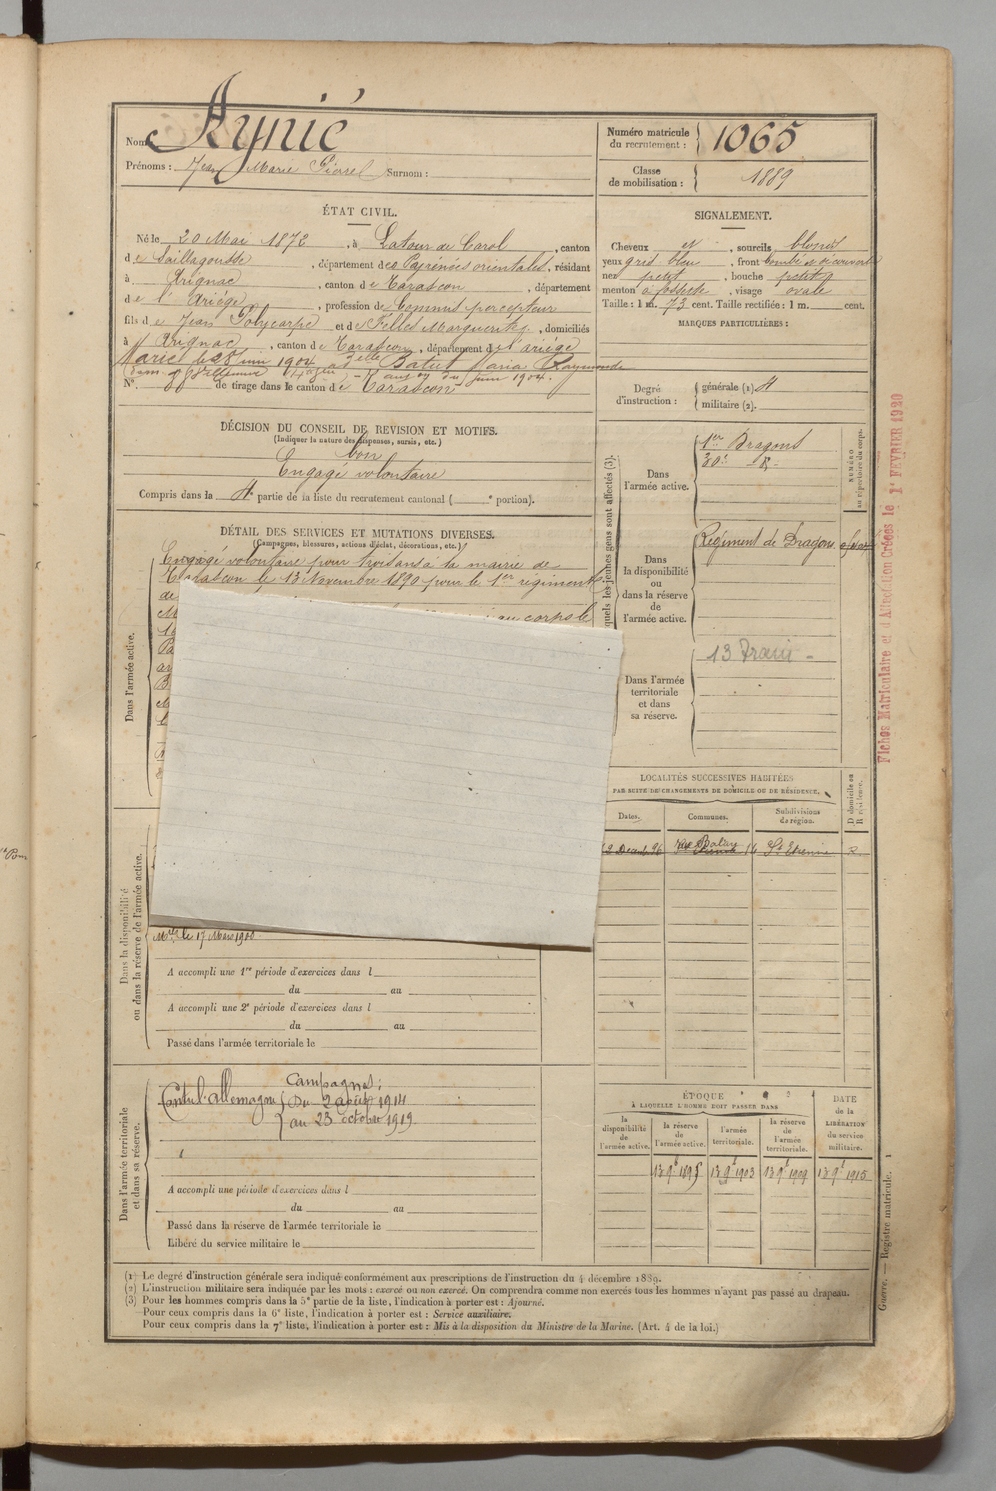 Nom: Aynié
Prénoms: Jean Marie Pierre Surnom:
Numéro matricule du recrutement: 1065
Classe de mobilisation: 1889
ÉTAT CIVIL.
Né le 20 Mai 1872, à Latour de Carol, canton
de Saillagousse, département des Pyrénées orientales, résidant
à Arignac, canton de Tarascon, département
de l'Ariége, profession de Commis percepteur
fils de Jean Polycarpe et de Felles Marguerite, domiciliés
à Arignac, canton de Tarascon, département de l'ariége
Marié le 28 juin 1904 à Delle Batut Maria Raymonde
N°. de tirage dans le canton de Tarascon
SIGNALEMENT.
Cheveux et, sourcils blonds
yeux gris bleu, front bombé et découvert
nez petit, bouche petite
menton à fossette, visage ovale
Taille: 1 m. 73 cent. Taille rectifiée: 1 m. cent.
MARQUES PARTICULIÈRES:
Degré d'instruction: générale (1)
militaire (2).
DÉCISION DU CONSEIL DE REVISION ET MOTIFS.
(Indiquer la nature des dispenses, sursis, etc.)
bon
Engagé volontaire
Compris dans la 4e partie de la liste du recrutement cantonal ( e portion).
DÉTAIL DES SERVICES ET MUTATIONS DIVERSES.
(Campagnes, blessures, actions d'éclat, décorations, etc.)
Dans l'armée active.
Engagé volontaire pour trois ans à la mairie de
Tarascon le 13 Novembre 1890 pour le 1er régiment
de
au corps le
Dans la disponibilité ou dans la réserve de l'armée active.
le 17 Mars 1900
A accompli une 1re période d'exercices dans l
du au
A accompli une 2e période d'exercices dans l
du au
Passé dans l'armée territoriale le
Dans l'armée territoriale et dans sa réserve.
Campagnes:
Contre l'allemagne du 2 août 1914
au 23 octobre 1919
A accompli une période d'exercices dans l
du au
Passé dans la réserve de l'armée territoriale le
Libéré du service militaire le
quels les jeunes gens sont affectés (3).
NUMÉRO au répertoire du corps.
Dans l'armée active.
1er Dragons
Dans la disponibilité ou dans la réserve de l'armée active.
Régiment de Dragons
Dans l'armée territoriale et dans sa réserve.
13 Train
LOCALITÉS SUCCESSIVES HABITÉES
PAR SUITE DE CHANGEMENTS DE DOMICILE OU DE RÉSIDENCE.
Dates. Communes. Subdivisions de région. D domicile ou R résidence.
St Etienne R
ÉPOQUE
À LAQUELLE L'HOMME DOIT PASSER DANS
la disponibilité de l'armée active.
la réserve de l'armée active.
l'armée territoriale.
la réserve de l'armée territoriale.
DATE de la LIBÉRATION du service militaire.
13 9bre 1893 13 9bre 1903 13 9bre 1909 13 9bre 1915
(1) Le degré d'instruction générale sera indiqué conformément aux prescriptions de l'instruction du 4 décembre 1889.
(2) L'instruction militaire sera indiquée par les mots: exercé ou non exercé. On comprendra comme non exercés tous les hommes n'ayant pas passé au drapeau.
(3) Pour les hommes compris dans la 5e partie de la liste, l'indication à porter est: Ajourné.
Pour ceux compris dans la 6e liste, l'indication à porter est: Service auxiliaire.
Pour ceux compris dans la 7e liste, l'indication à porter est: Mis à la disposition du Ministre de la Marine. (Art. 4 de la loi.)
Guerre. — Registre matricule. 1
Fiches Matriculaire et d'Affectation Créées le 1er FÉVRIER 1920